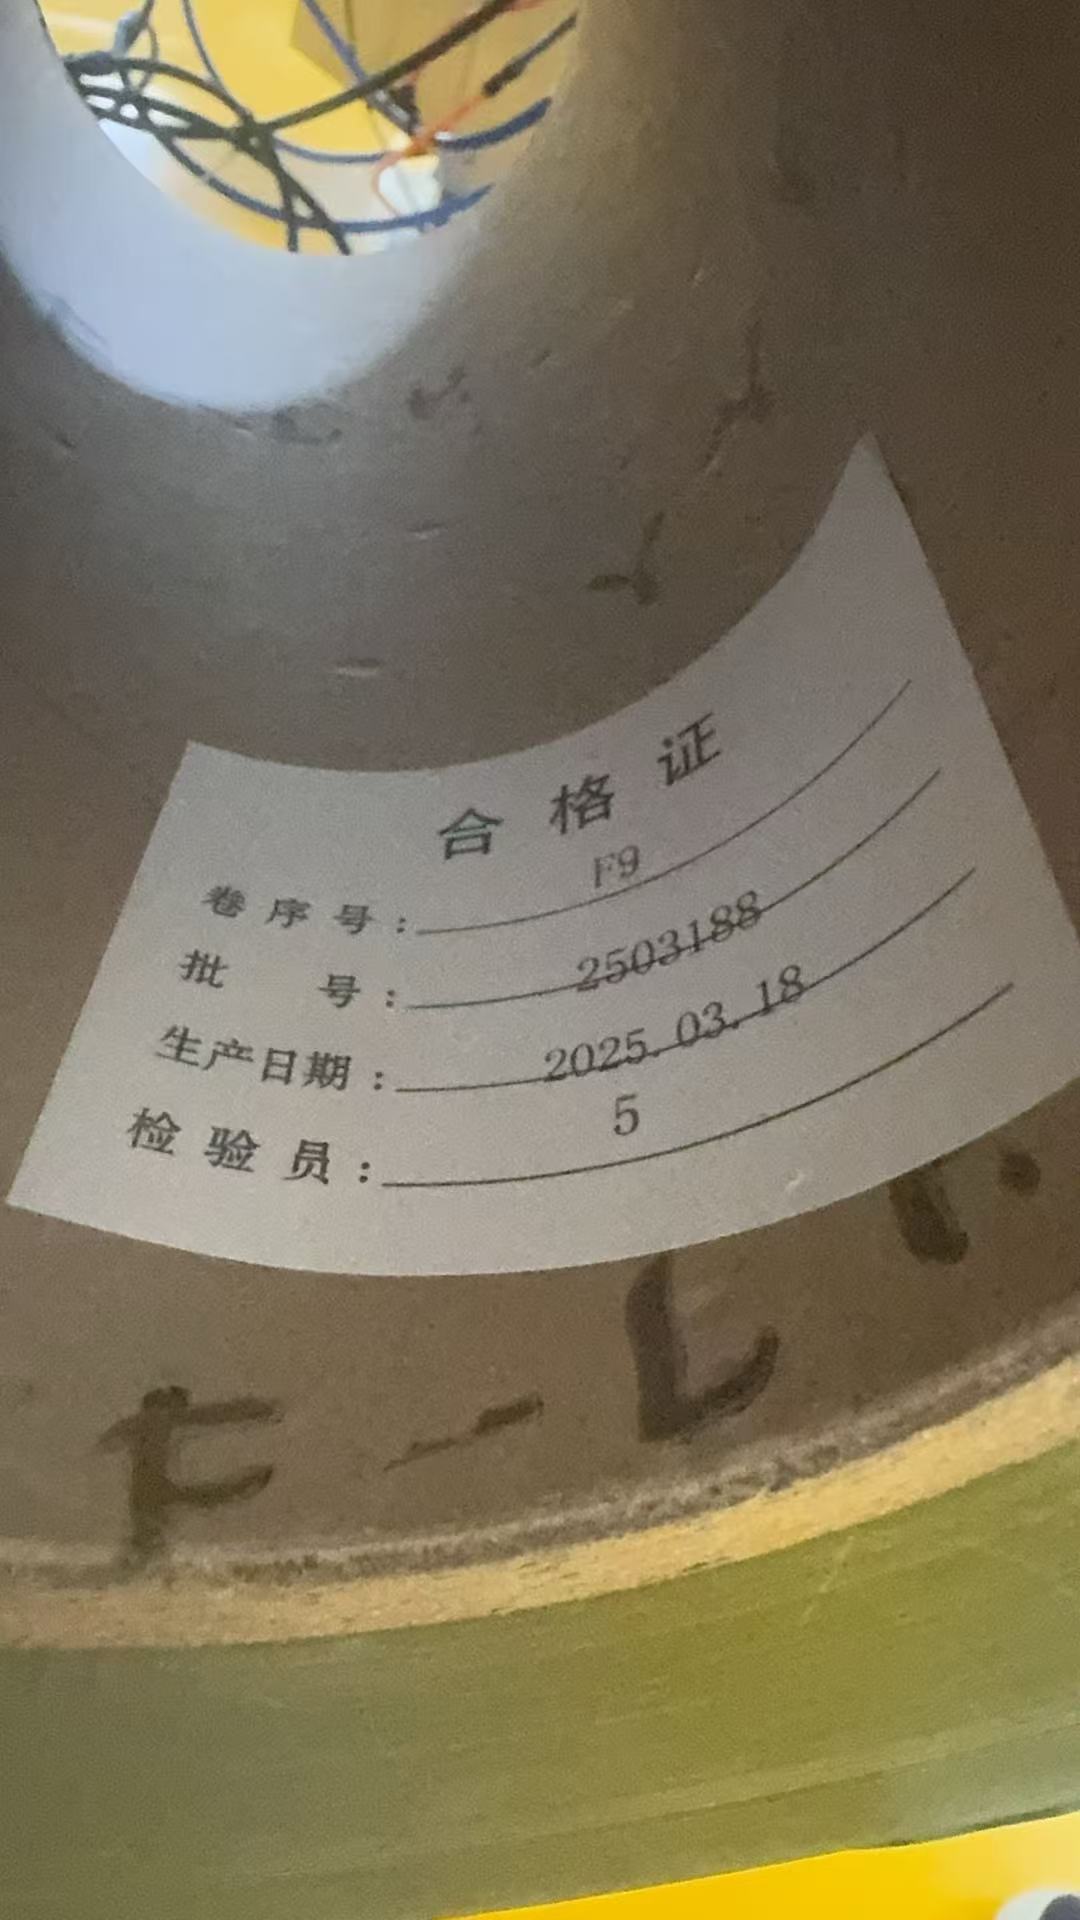 合格证
卷序号：F9
批号：2503188
生产日期：2025.03.18
检验员：5
F-L